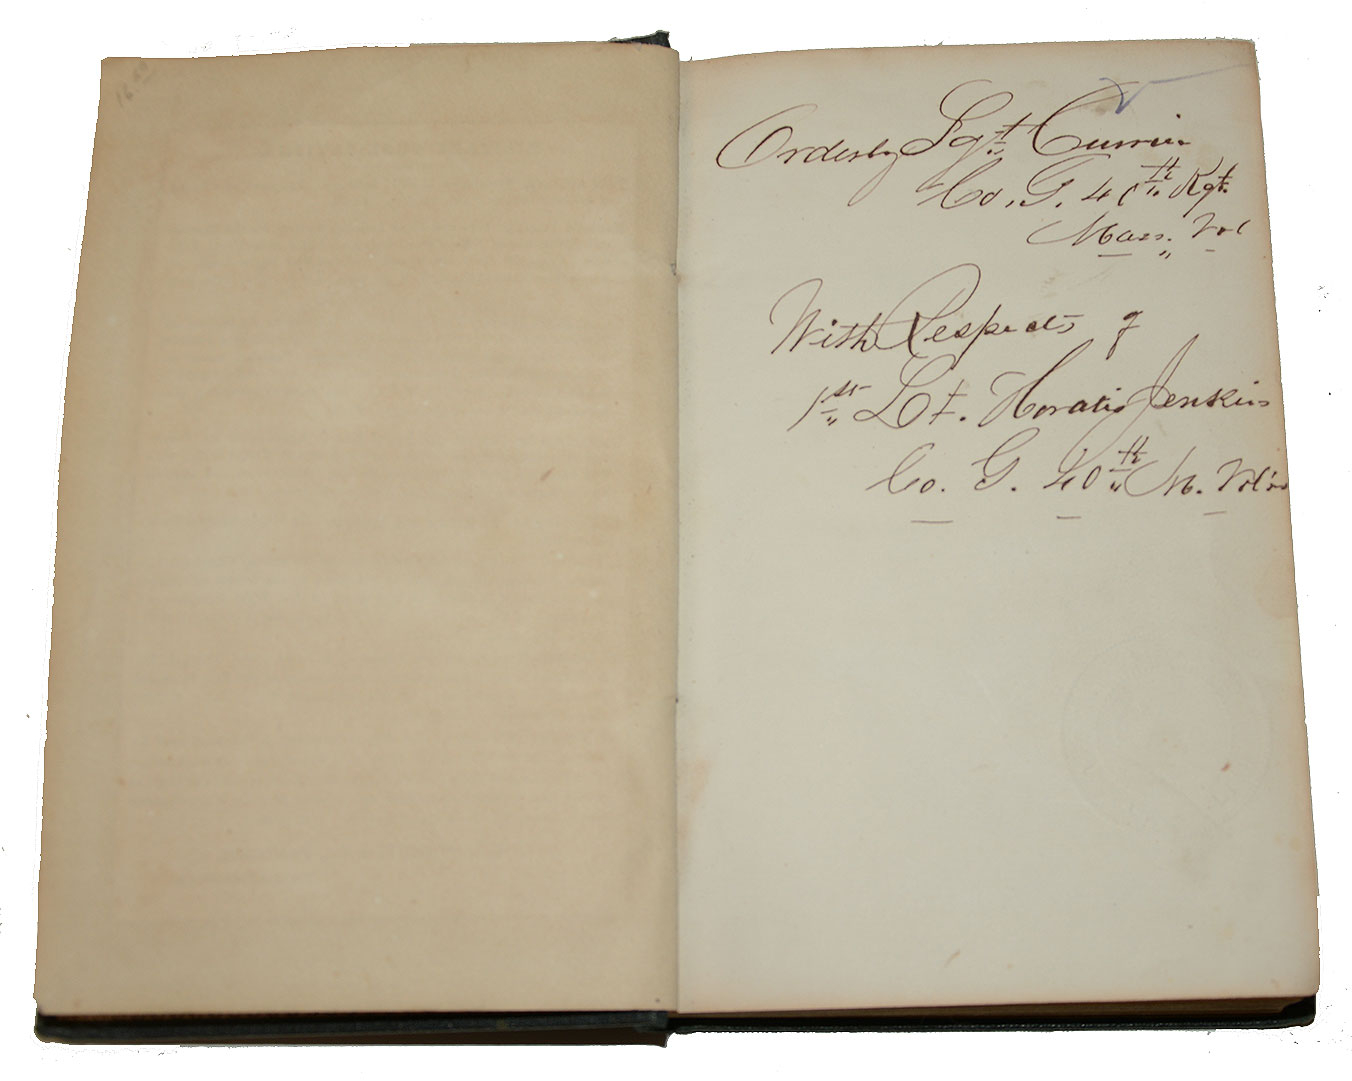 Orderly Sgt. Currier
Co. G. 40th Rgt.
Mass. Vol
With Respects of
1st Lt. Horatio Jenkins
Co. G. 40th M. Vol's